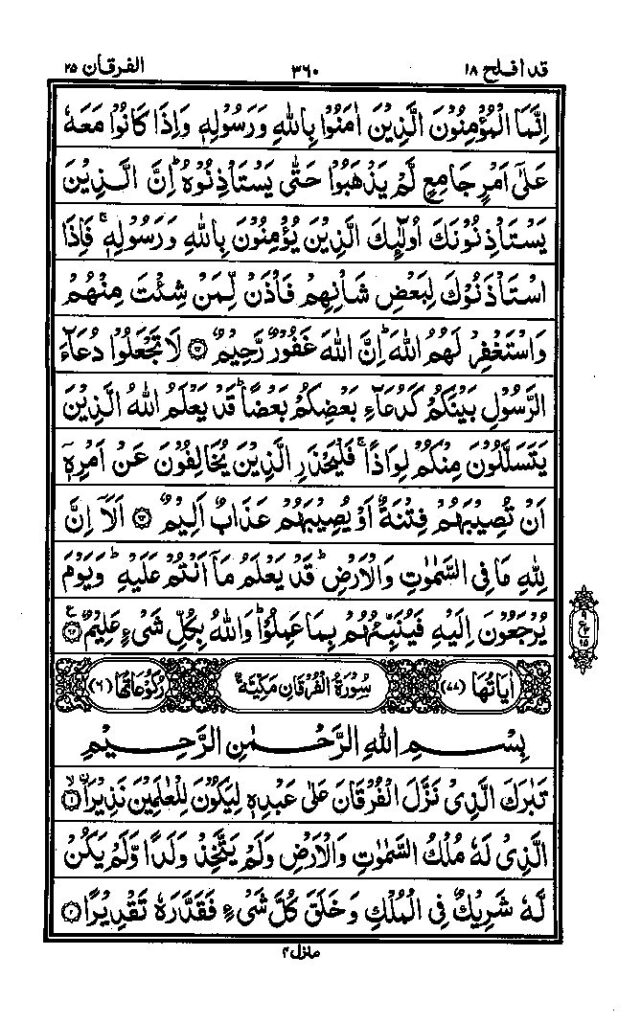 قد افلح ١٨ ٣٦٠ الفرقان ٢٥
اِنَّمَا الْمُؤْمِنُوْنَ الَّذِيْنَ اٰمَنُوْا بِاللّٰهِ وَرَسُوْلِهٖ وَاِذَا كَانُوْا مَعَهٗ
عَلٰٓى اَمْرٍ جَامِعٍ لَّمْ يَذْهَبُوْا حَتّٰى يَسْتَاْذِنُوْهُ ؕ اِنَّ الَّذِيْنَ
يَسْتَاْذِنُوْنَكَ اُولٰٓئِكَ الَّذِيْنَ يُؤْمِنُوْنَ بِاللّٰهِ وَرَسُوْلِهٖ ۚ فَاِذَا
اسْتَاْذَنُوْكَ لِبَعْضِ شَاْنِهِمْ فَاْذَنْ لِّمَنْ شِئْتَ مِنْهُمْ
وَاسْتَغْفِرْ لَهُمُ اللّٰهَ ؕ اِنَّ اللّٰهَ غَفُوْرٌ رَّحِيْمٌ ﴿٦٢﴾ لَا تَجْعَلُوْا دُعَآءَ
الرَّسُوْلِ بَيْنَكُمْ كَدُعَآءِ بَعْضِكُمْ بَعْضًا ؕ قَدْ يَعْلَمُ اللّٰهُ الَّذِيْنَ
يَتَسَلَّلُوْنَ مِنْكُمْ لِوَاذًا ۚ فَلْيَحْذَرِ الَّذِيْنَ يُخَالِفُوْنَ عَنْ اَمْرِهٖٓ
اَنْ تُصِيْبَهُمْ فِتْنَةٌ اَوْ يُصِيْبَهُمْ عَذَابٌ اَلِيْمٌ ﴿٦٣﴾ اَلَاۤ اِنَّ
لِلّٰهِ مَا فِى السَّمٰوٰتِ وَالْاَرْضِ ؕ قَدْ يَعْلَمُ مَاۤ اَنْتُمْ عَلَيْهِ ؕ وَيَوْمَ
يُرْجَعُوْنَ اِلَيْهِ فَيُنَبِّئُهُمْ بِمَا عَمِلُوْا ؕ وَاللّٰهُ بِكُلِّ شَىْءٍ عَلِيْمٌ ﴿٦٤﴾
ع ٩ ٣ ١٥
اٰيَاتُهَا (٧٧) سُوْرَةُ الْفُرْقَانِ مَكِّيَّةٌ رُكُوْعَاتُهَا (٦)
بِسْمِ اللّٰهِ الرَّحْمٰنِ الرَّحِيْمِ
تَبٰرَكَ الَّذِىْ نَزَّلَ الْفُرْقَانَ عَلٰى عَبْدِهٖ لِيَكُوْنَ لِلْعٰلَمِيْنَ نَذِيْرًا ۙ﴿١﴾
الَّذِىْ لَهٗ مُلْكُ السَّمٰوٰتِ وَالْاَرْضِ وَلَمْ يَتَّخِذْ وَلَدًا وَّلَمْ يَكُنْ
لَّهٗ شَرِيْكٌ فِى الْمُلْكِ وَخَلَقَ كُلَّ شَىْءٍ فَقَدَّرَهٗ تَقْدِيْرًا ﴿٢﴾
منزل ٤